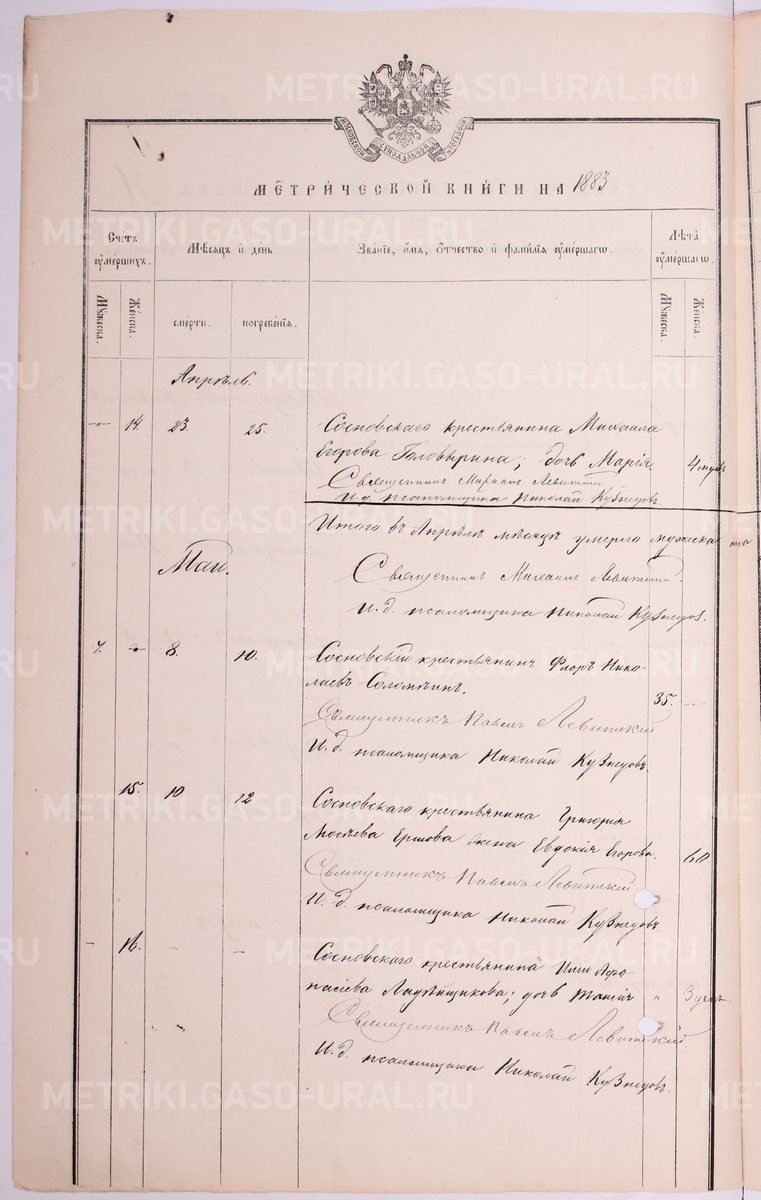 МОСКОВСКОЙ СѴНОДАЛЬНОЙ ТѴПОГРАФІИ
МЕТРИ́ЧЕСКОЙ КНИ́ГИ НА 1883
Сче́тъ ѹме́ршихъ.
Мѣ́сяцъ и де́нь
Зва́нїе, и́мя, ѻ́тчество и фами́лїя ѹме́ршагѡ.
Лѣ́та ѹме́ршагѡ.
Мꙋ́жеска.
Же́нска.
сме́рти.
погребе́нїя.
Мꙋ́жеска.
Же́нска.
Апрѣль.
14. 23. 25. Сосновскаго крестьянина Михаила
Егорова Головырина; дочь Марія 4
Священникъ Левитскій
И. д. псаломщика Николай Кузнецовъ
Итого въ Апрѣлѣ мѣсяцѣ умерло мужеска
Май.
Священникъ Михаилъ Левитскій.
И. д. псаломщика Николай Кузнецовъ.
7. 8. 10. Сосновскій крестьянинъ Флоръ Нико-
лаевъ 35.
Священникъ Левитскій
И. д. псаломщика Николай Кузнецовъ.
15. 10 12 Сосновскаго крестьянина Григорія
Ершова жена Евдокія Егорова. 60
Священникъ Левитскій
И. д. псаломщика Николай Кузнецовъ.
16. Сосновскаго крестьянина
дочь 3
Священникъ Левитскій.
И. д. псаломщика Николай Кузнецовъ.
METRIKI.GASO-URAL.RU